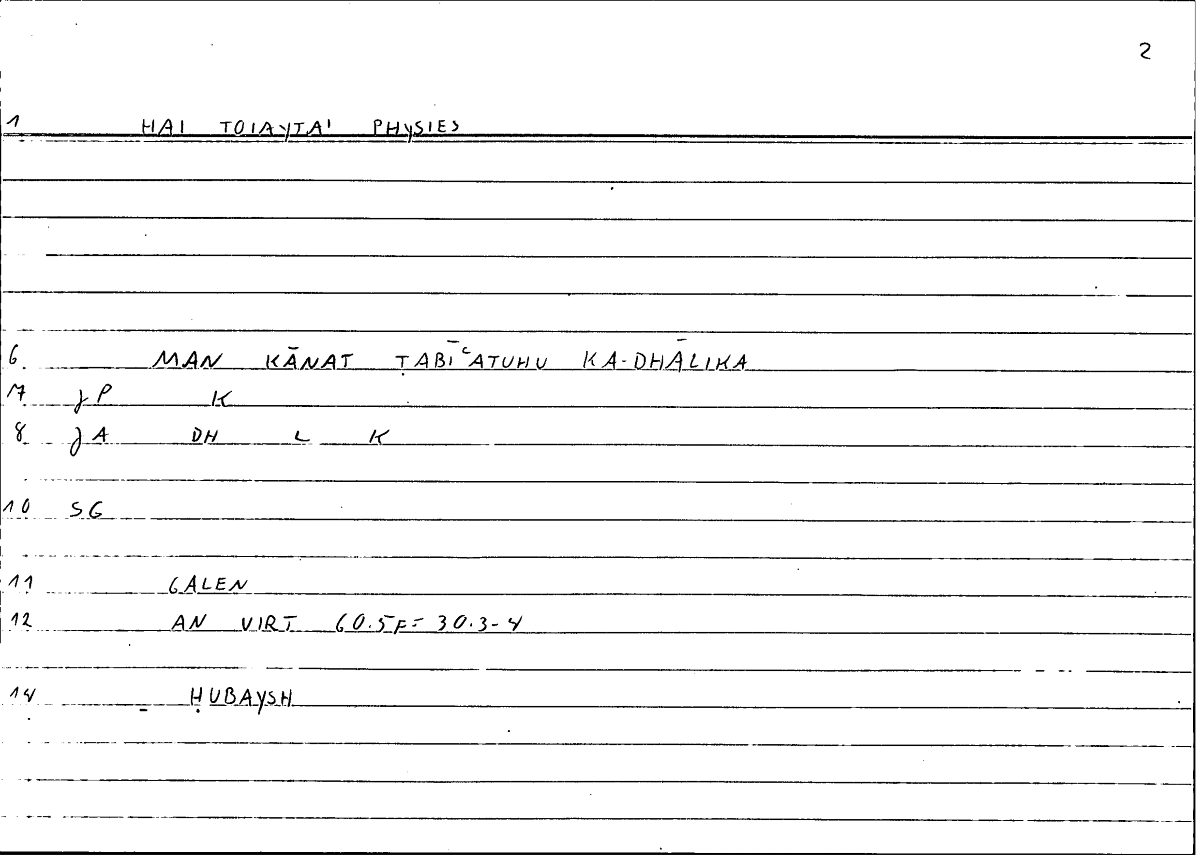 2
1 HAI TOIAYTAI PHYSIES
6 MAN KĀNAT ṬABĪʿATUHU KA-DHĀLIKA
7 γP K
8 γA DH L K
10 SG
11 GALEN
12 AN VIRT 60.5F= 30.3-4
14 - ḤUBAYSH